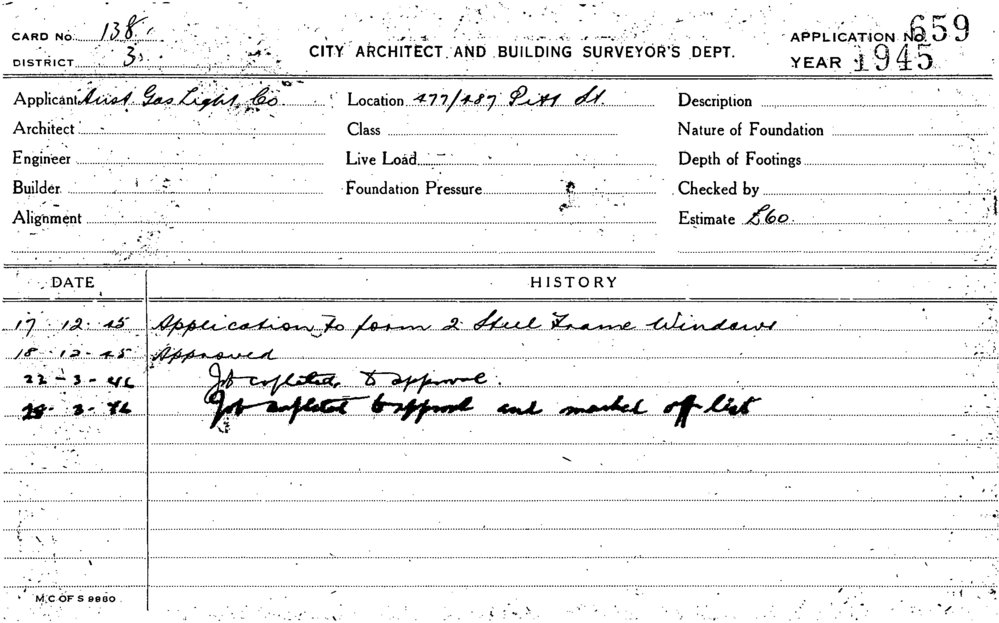 CARD No. 138
DISTRICT 3
CITY ARCHITECT AND BUILDING SURVEYOR'S DEPT.
APPLICATION No. 659
YEAR 1945
Applicant Aust Gas Light Co. Location 477/487 Pitt St. Description
Architect Class Nature of Foundation
Engineer Live Load Depth of Footings
Builder Foundation Pressure Checked by
Alignment Estimate £60
DATE HISTORY
17 . 12 . 45 Application to form 2 Steel Frame Windows
18 . 12 . 45 Approved
22 - 3 - 46 Job completed to approval.
28 . 3 . 46 Job completed to approval and marked off list
M.C OF S 9860